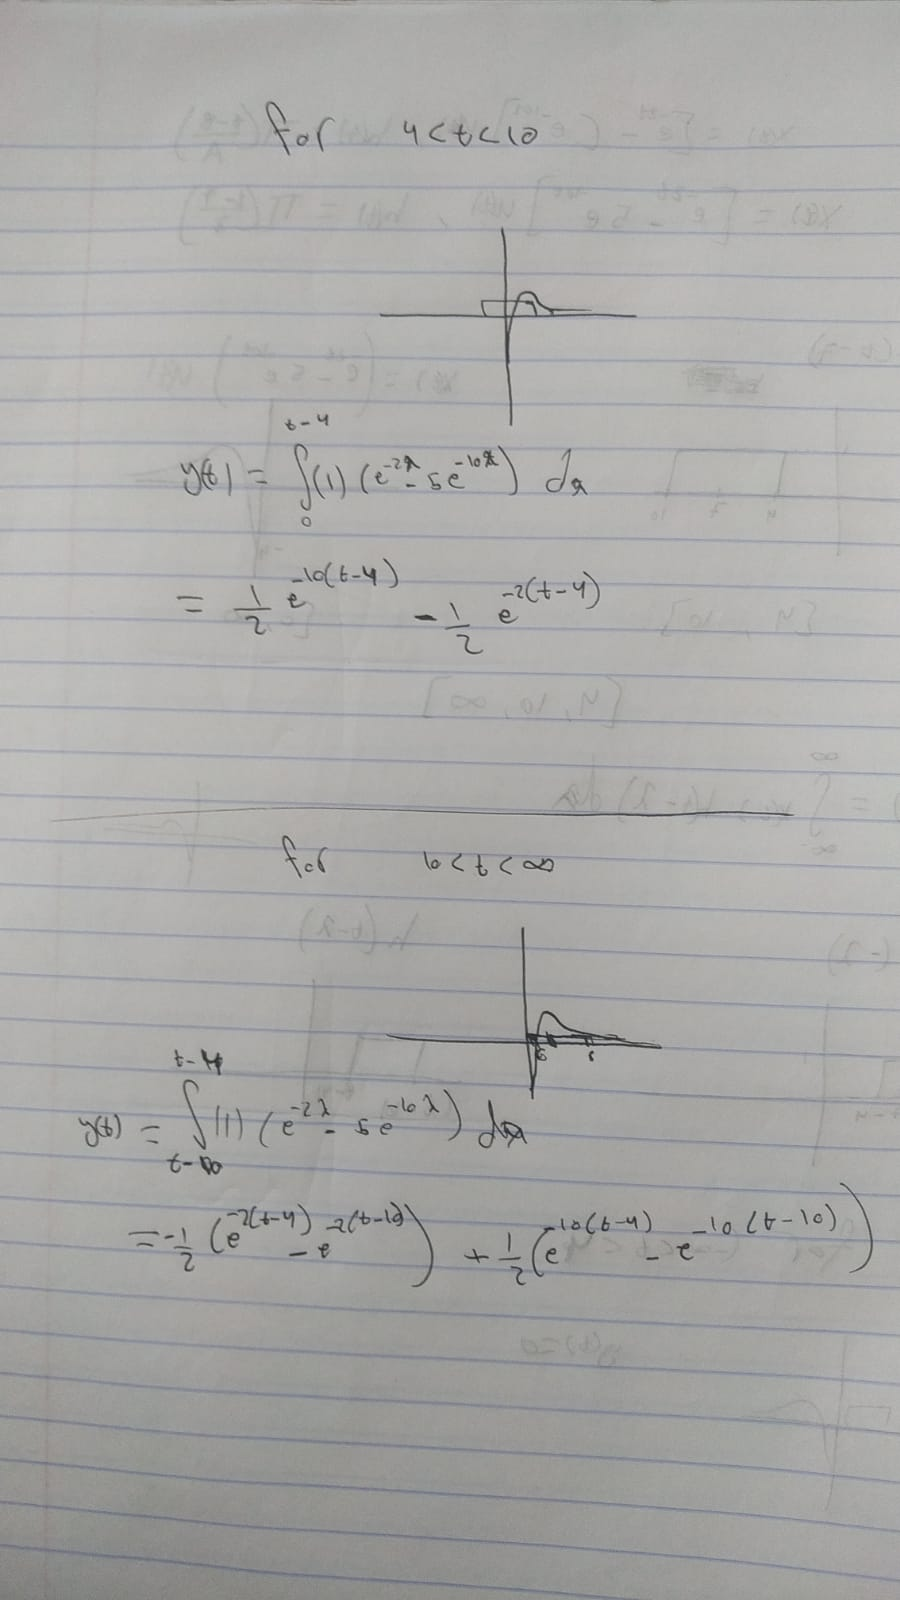 for 4<t<10
t-4
y(t) = ∫(1) (e^-2λ - 5e^-10λ) dλ
0
= 1/2 e^-10(t-4) - 1/2 e^-2(t-4)
for 10<t<∞
t-4
y(t) = ∫(1) (e^-2λ - 5e^-10λ) dλ
t-10
= -1/2 (e^-2(t-4) - e^-2(t-10)) + 1/2 (e^-10(t-4) - e^-10(t-10))